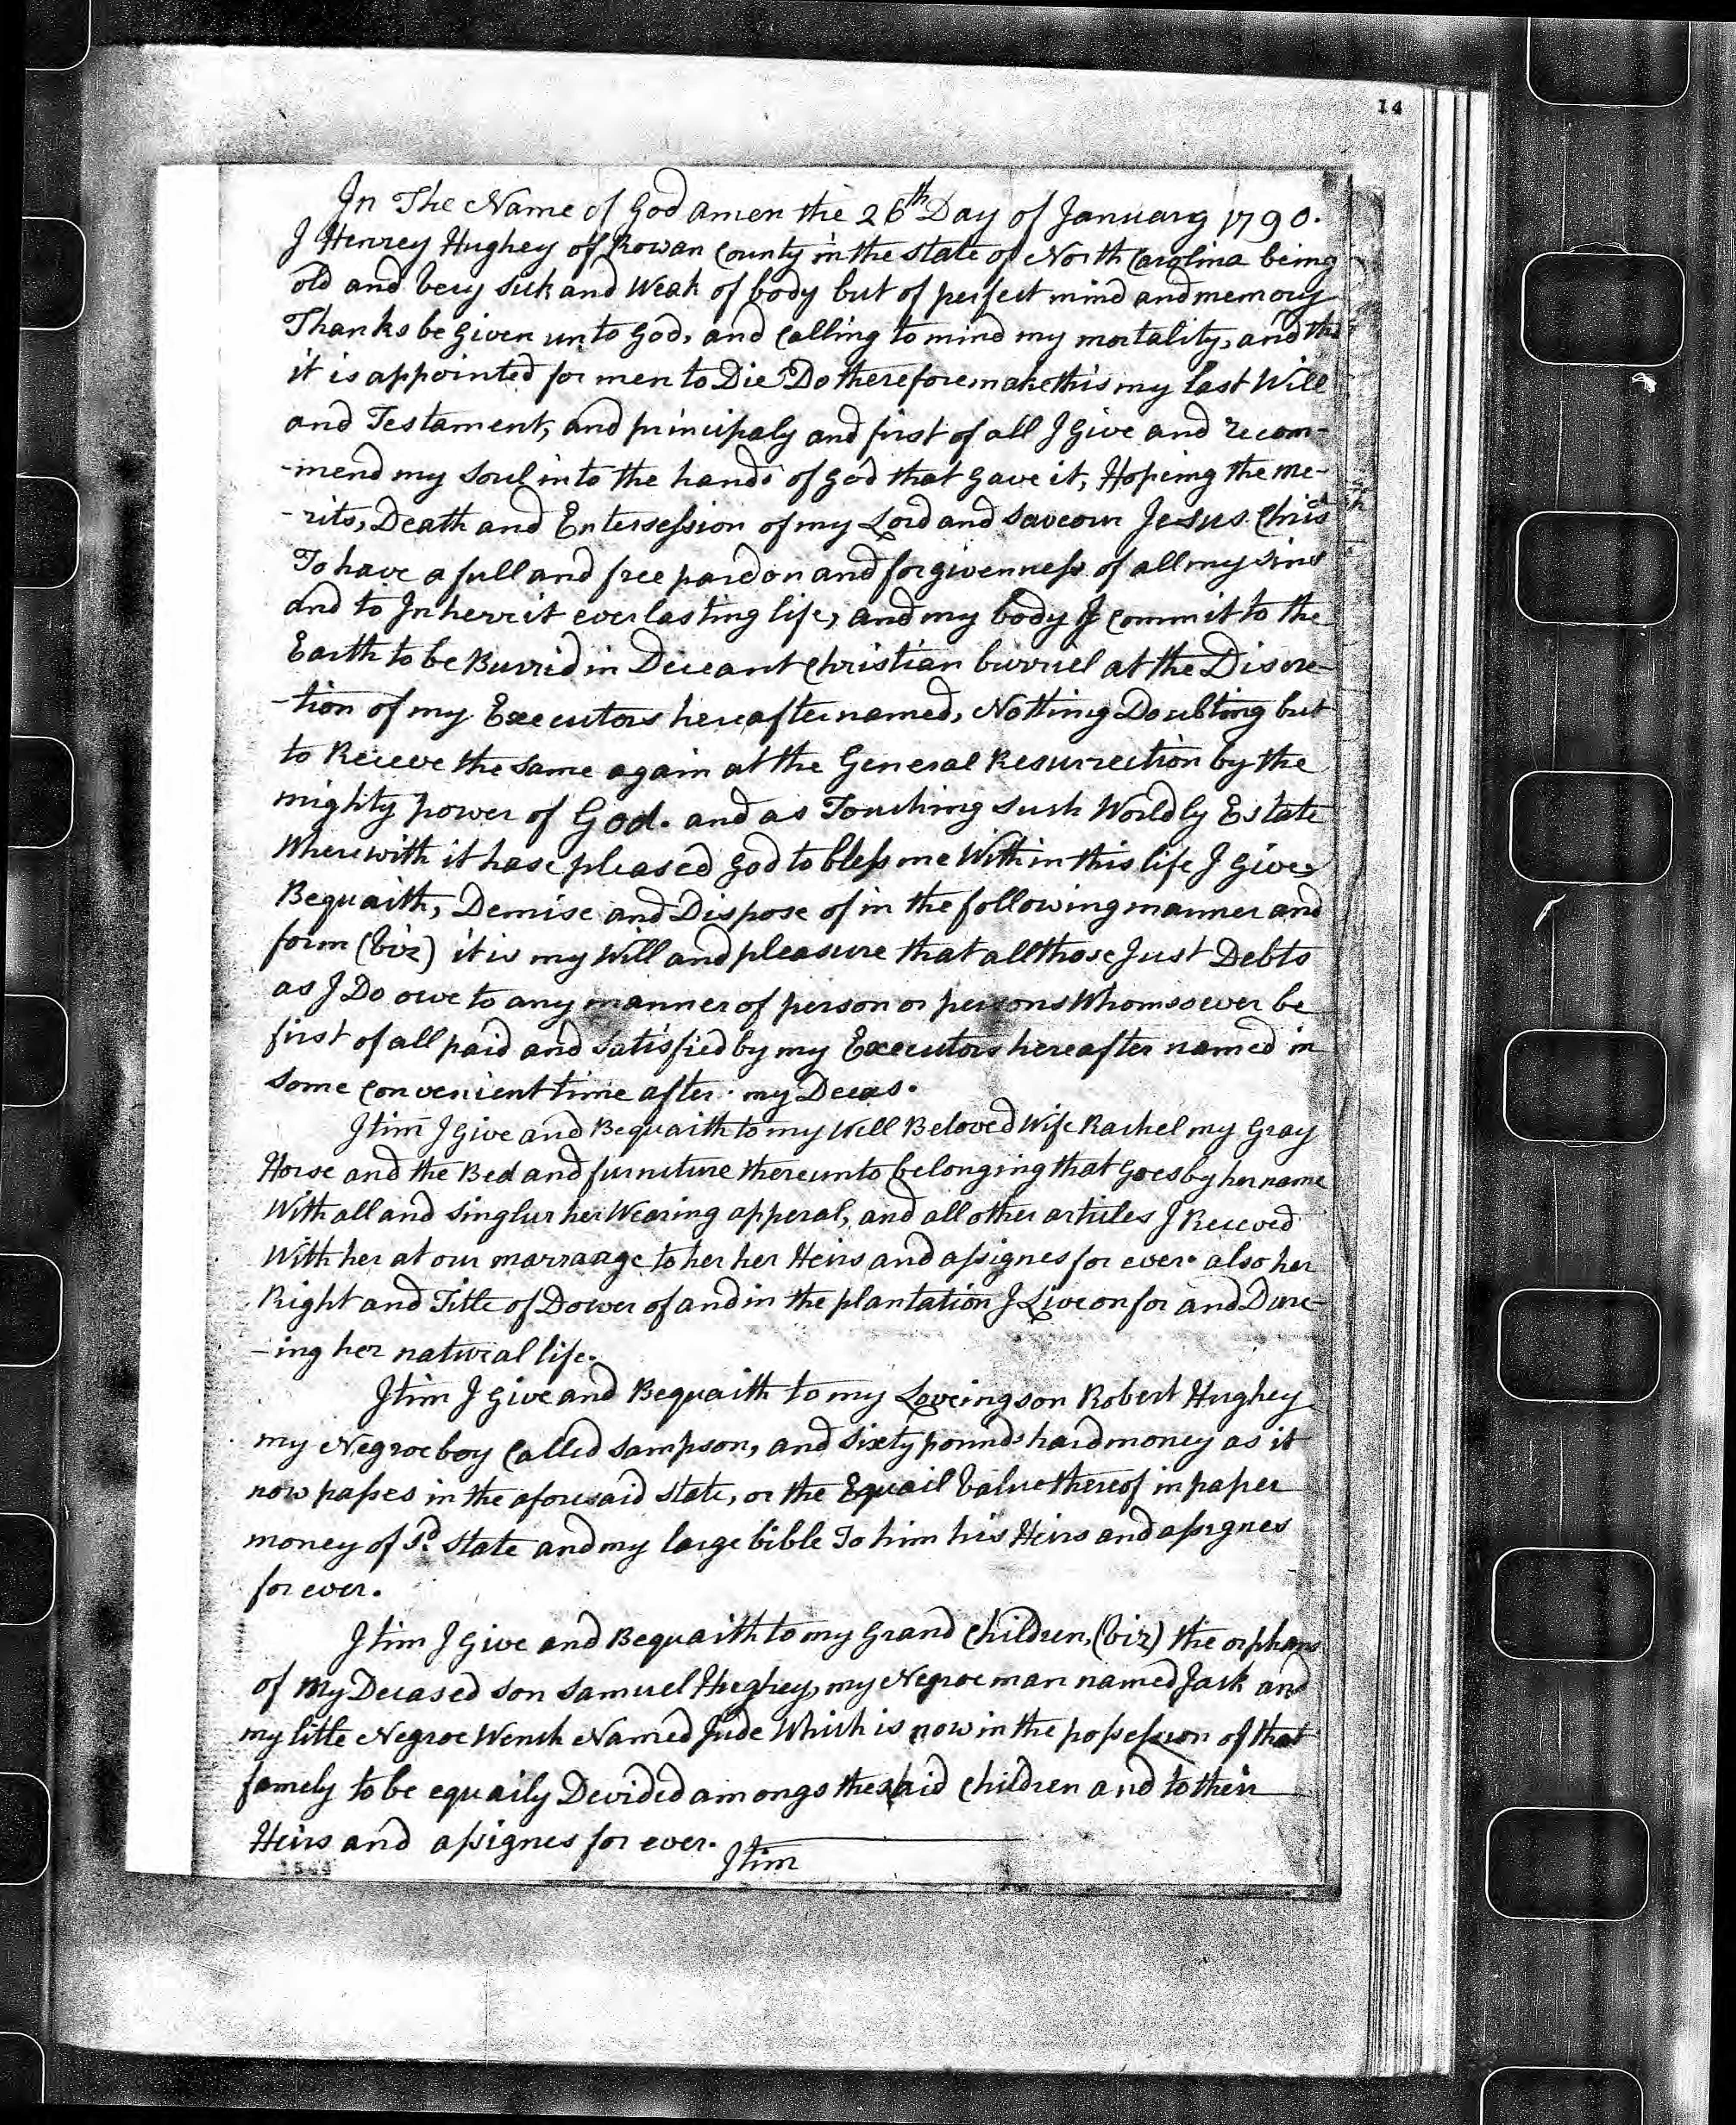 14
In The Name of God amen the 26th Day of January 1790.
I Henrey Hughey of Rowan County in the state of North Carolina being
old and very sick and Weak of body but of perfect mind and memory
Thanks be Given unto God, and Calling to mind my mortality, and tha
it is appointed for men to Die Do therefore make this my last Will
and Testament, and principaly and first of all I Give and recom-
-mend my soul into the hands of God that Gave it, Hopeing the me-
-rits, Death and Entersession of my Lord and saveour Jesus Christ
To have a full and free pardon and forgivenness of all my sins
and to Inherreit everlasting life, and my body I Commit to the
Earth to be Burrid in Deceant Christian burriel at the Discre-
-tion of my Executors hereafter named, Nothing Doubting but
to Receve the same again at the General Resurrection by the
mighty power of God. and as Touching such Worldly Estate
Wherewith it hase pleased God to bless me With in this life I Give,
Bequaith, Demise and Dispose of in the following manner and
form (viz) it is my Will and pleasure that all those Just Debts
as I Do owe to any manner of person or persons Whomsoever be
first of all paid and satisfied by my Executors hereafter named in
some Convenient time after my Deceas.
Itim I Give and Bequaith to my Well Beloved Wife Rachel my Gray
Horse and the Bed and furniture thereunto belonging that Goes by her name
With all and singlur her Wearing apperal, and all other articles I Receved
With her at our marrange to her her Heirs and assignes for ever. also her
Right and Title of Dower of and in the plantation I Live on for and Dure-
-ing her natural life.
Itim I Give and Bequaith to my Loveing son Robert Hughey
my Negroe boy Called Sampson, and sixty pounds hard money as it
now passes in the aforesaid state, or the Equail Value thereof in paper
money of sd. state and my large bible To him his Heirs and assignes
for ever.
Itim I Give and Bequaith to my Grand Children, (viz) the orphans
of my Deceased son Samuel Hughey, my Negroe man named Jack and
my litle Negroe Wench Named Jude Which is now in the possession of that
famely to be equaily Devided amongs the said Children and to their
Heirs and assignes for ever.
Itim